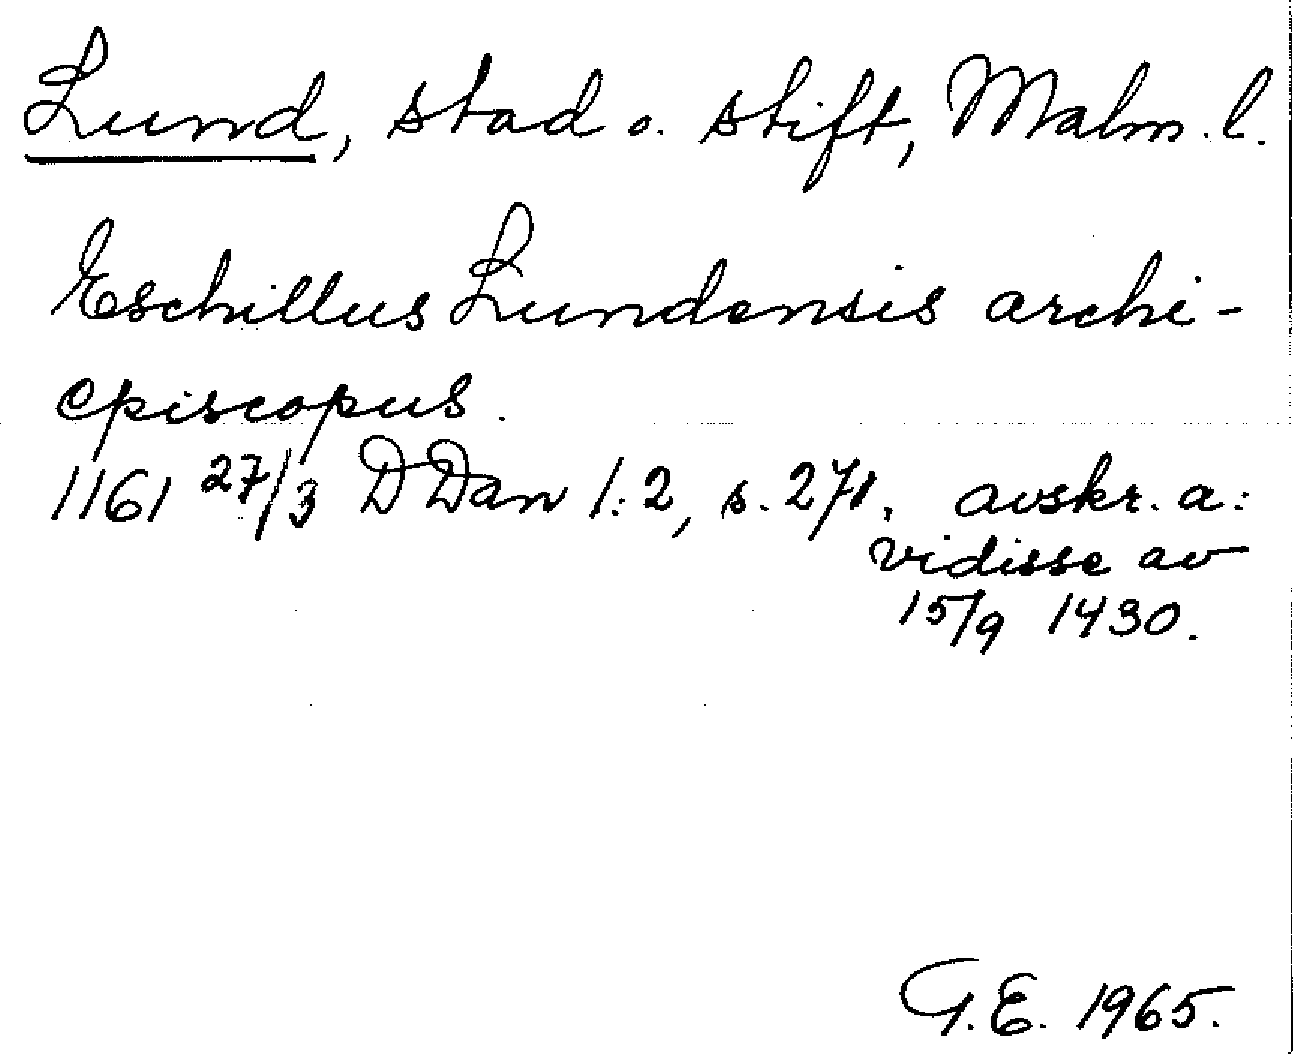 Lund, stad o. stift, Malm. l.
Eschillus Lundensis archi-
episcopus.
1161 27/3 DDan 1:2, s. 271, avskr. a:
vidisse av
15/9 1430.
G.E. 1965.